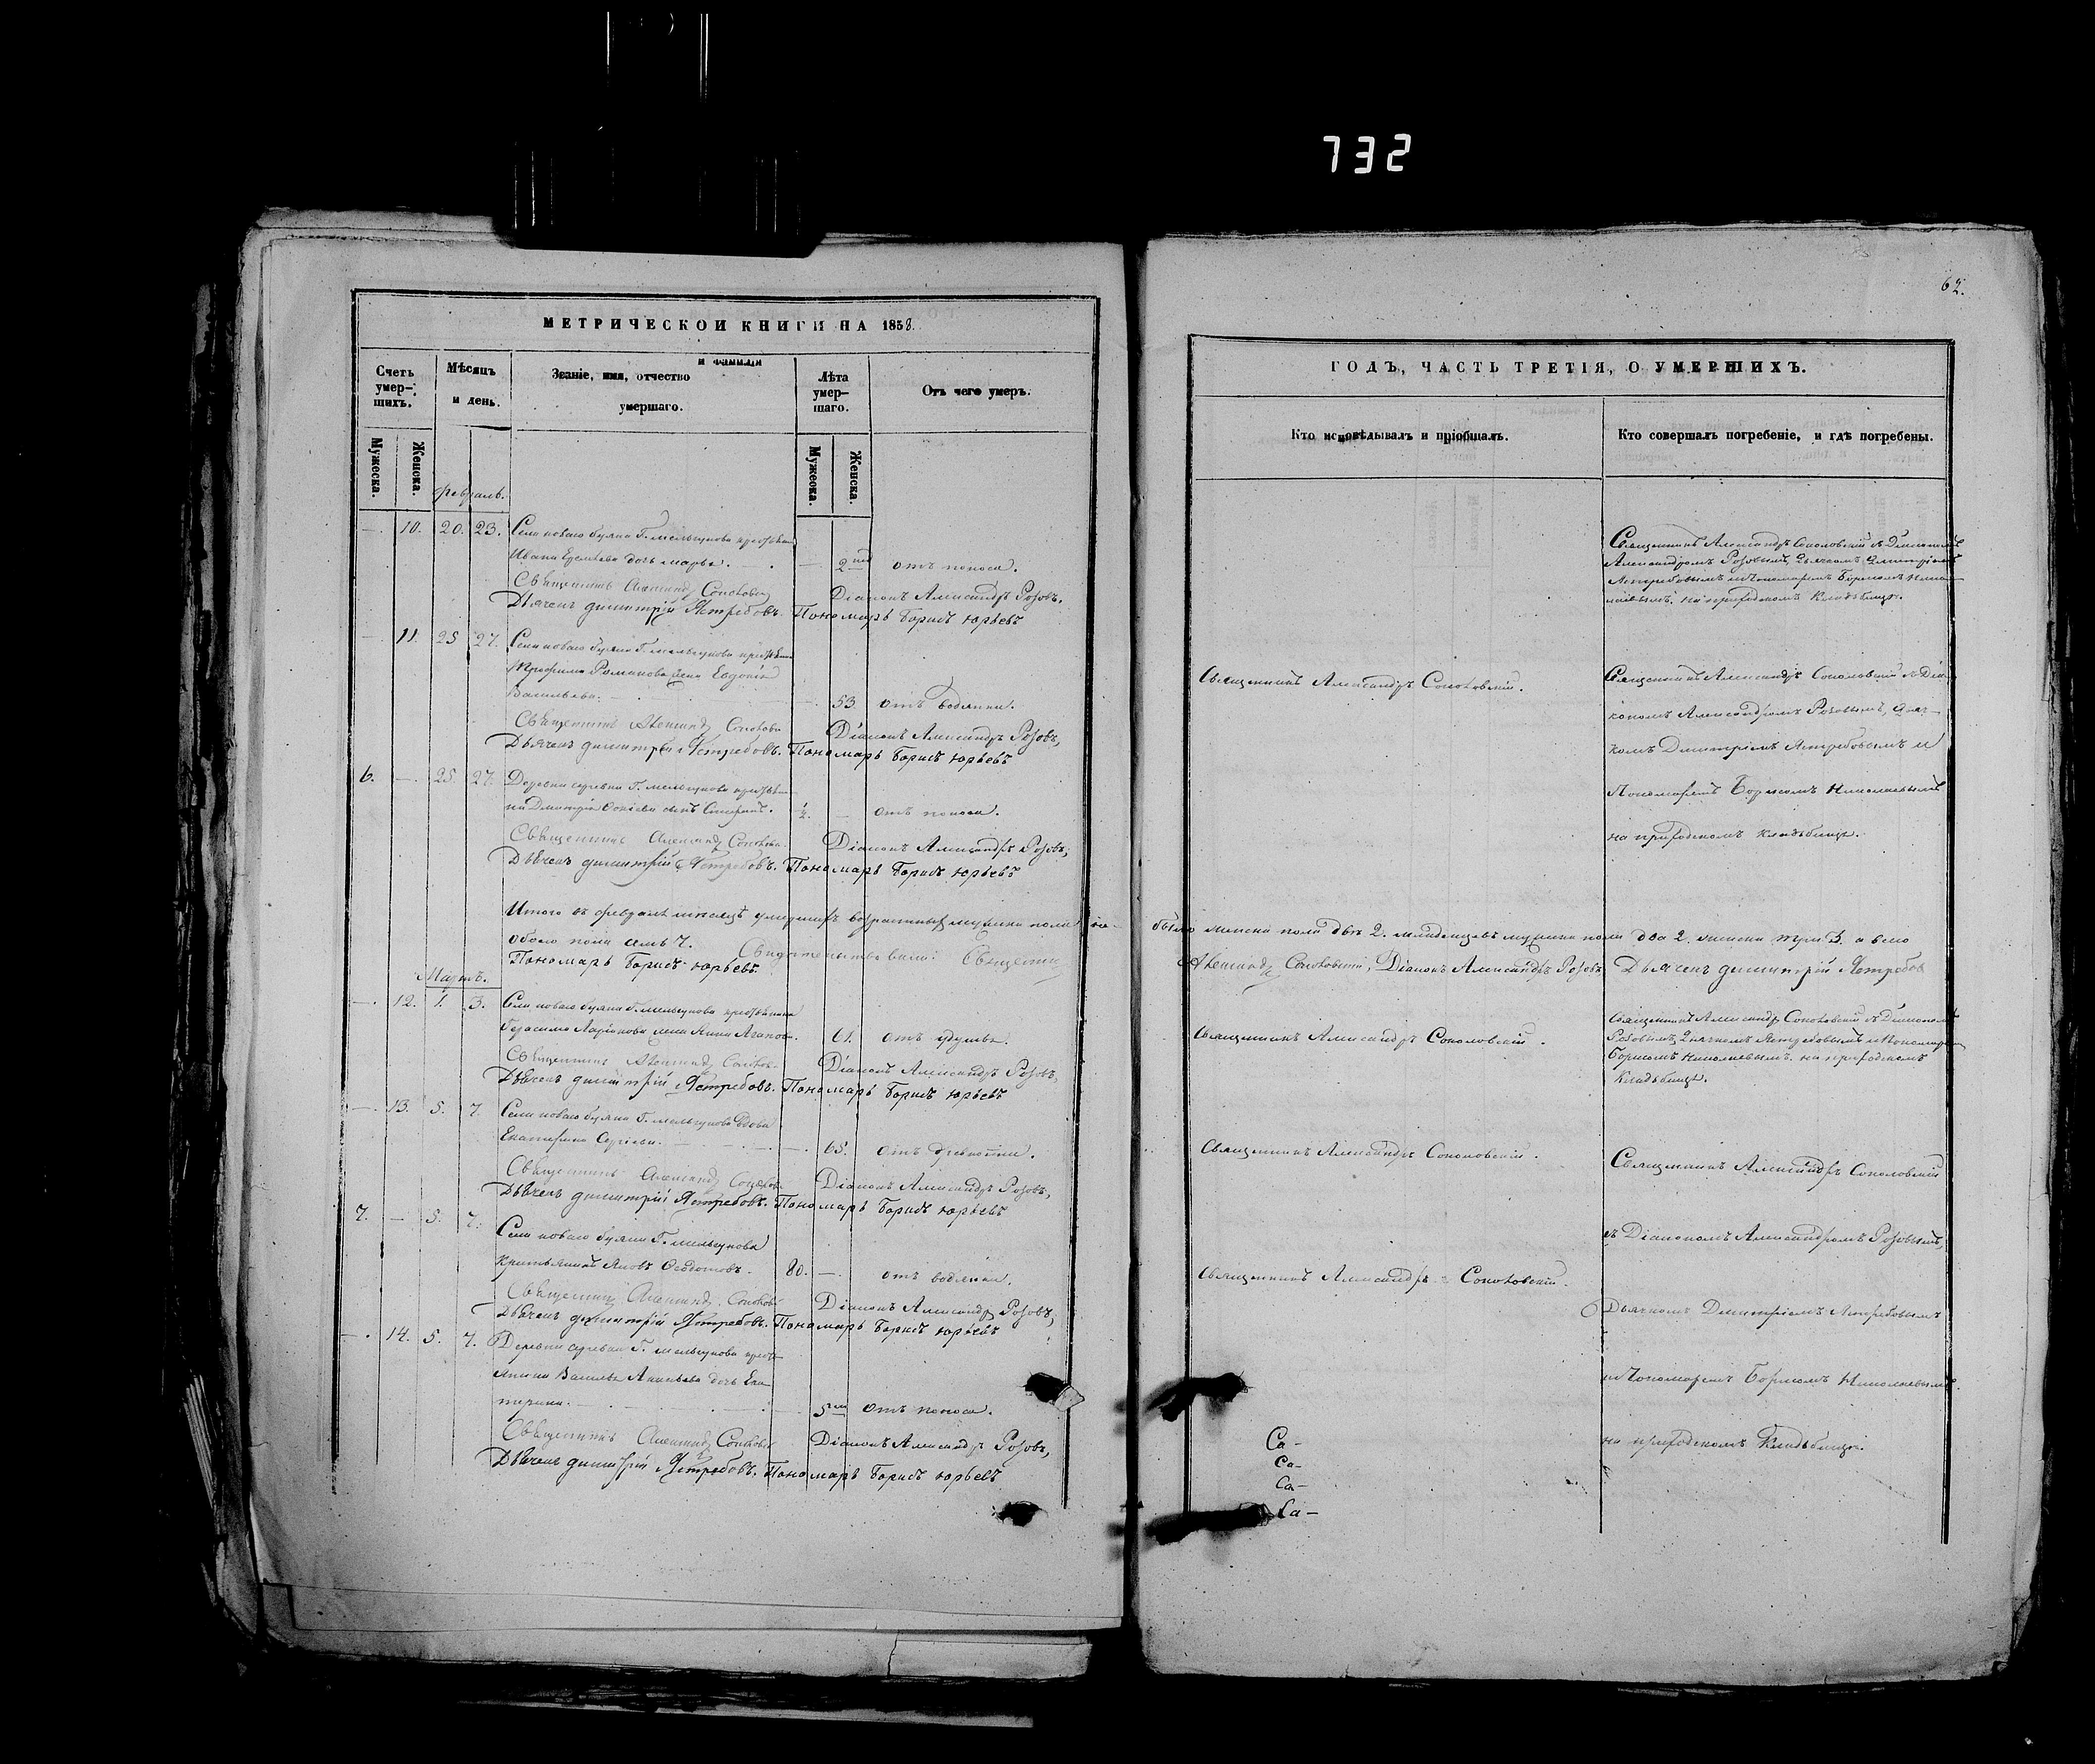 732
МЕТРИЧЕСКОЙ КНИГИ НА 1858.
Счетъ умер-шихъ.
Мѣсяцъ и день.
Званіе, имя, отчество и фамилія умершаго.
Лѣта умер-шаго.
Отъ чего умеръ.
Мужеска.
Женска.
Мужеска.
Женска.
февраль.
— 10. 20. 23. Села новаго буяна Г. мельгунова
Ивана дочь марья. — 2 отъ поноса.
Священникъ Александръ Соколовскій Діаконъ Александръ Розовъ,
Дьячекъ димитрій Ястребовъ. Пономарь Борисъ юрьевъ
— 11. 25 27. Села новаго буяна Г. мельгунова
Романова жена Евдокія
Васильева. — 53 отъ водянки.
Священникъ Александръ Соколовскій Діаконъ Александръ Розовъ,
Дьячекъ димитрій Ястребовъ. Пономарь Борисъ юрьевъ
6. — 25 27. Деревни Г. мельгунова
на Дмитрія сынъ ½. — отъ поноса.
Священникъ Александръ Соколовскій Діаконъ Александръ Розовъ,
Дьячекъ димитрій Ястребовъ. Пономарь Борисъ юрьевъ
Итого въ февралѣ мѣсяцѣ умершихъ возрастныхъ мужска пола не-
обоего пола семь 7. Свидѣтельствовали: Священникъ
Пономарь Борисъ юрьевъ.
Мартъ.
— 12. 1. 3. Села новаго буяна Г. мельгунова крестьянина
Герасима Ларіонова жена Анна Агапова. 61. отъ удушья.
Священникъ Александръ Соколов. Діаконъ Александръ Розовъ,
Дьячекъ димитрій Ястребовъ. Пономарь Борисъ юрьевъ
— 13. 5. 7. Села новаго буяна Г. мельгунова вдова
Екатерина Сергіева. — 65. отъ древности.
Священникъ Александръ Соколов. Діаконъ Александръ Розовъ,
Дьячекъ димитрій Ястребовъ. Пономарь Борисъ юрьевъ
7. — 5. 7. Села новаго буяна Г. мельгунова
крестьянинъ Яковъ Ѳедотовъ. 80. — отъ водянки.
Священникъ Александръ Соколов. Діаконъ Александръ Розовъ,
Дьячекъ димитрій Ястребовъ. Пономарь Борисъ юрьевъ
— 14. 5. 7. Деревни Г. мельгунова кресть-
янина Василья Ананьева дочь Ека-
терина. 5 отъ поноса.
Священникъ Александръ Соколов. Діаконъ Александръ Розовъ,
Дьячекъ димитрій Ястребовъ. Пономарь Борисъ юрьевъ
62.
ГОДЪ, ЧАСТЬ ТРЕТІЯ, О УМЕРШИХЪ.
Кто исповѣдывалъ и пріобщалъ.
Кто совершалъ погребеніе, и гдѣ погребены.
Священникъ Александръ Соколовскій съ Діакономъ
Александромъ Розовымъ, Дьячкомъ Димитріемъ
Ястребовымъ и Пономаремъ Борисомъ Никола-
евымъ. на приходскомъ кладбищѣ.
Священникъ Александръ Соколовскій.
Священникъ Александръ Соколовскій съ Діа-
кономъ Александромъ Розовымъ, Дьяч-
комъ Дмитріемъ Ястребовымъ и
Пономаремъ Борисомъ Николаевымъ
на приходскомъ кладбищѣ.
было женска пола двѣ 2. младенцевъ мужска пола два 2. женска три 3. а всего
Александръ Соколовскій, Діаконъ Александръ Розовъ Дьячекъ димитрій Ястребов
Священникъ Александръ Соколовскій.
Священникъ Александръ Соколовскій съ Діакономъ
Розовымъ, Дьячкомъ Ястребовымъ и Пономаремъ
Борисомъ Николаевымъ. на приходскомъ
кладбищѣ.
Священникъ Александръ Соколовскій.
Священникъ Александръ Соколовскій
съ Діакономъ Александромъ Розовымъ,
Священникъ Александръ Соколовскій.
Дьячкомъ Димитріемъ Ястребовымъ
и Пономаремъ Борисомъ Николаевымъ.
на приходскомъ кладбищѣ.
Са-
Са-
Са-
Са-